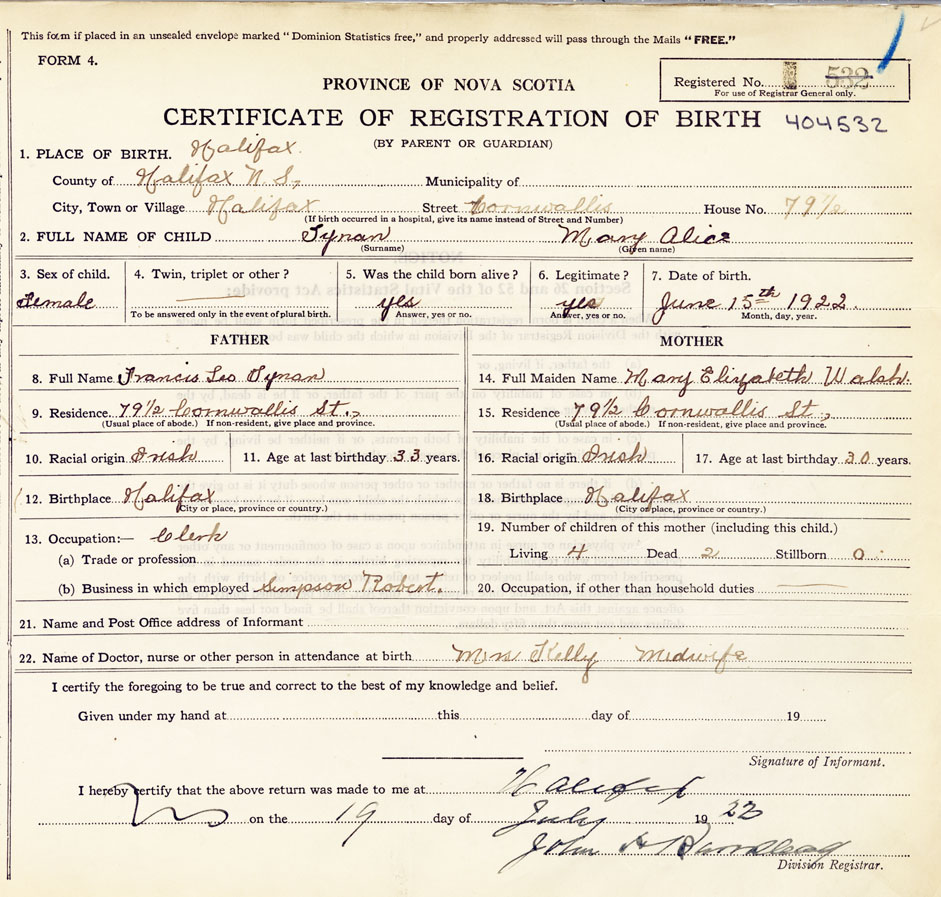 This form if placed in an unsealed envelope marked "Dominion Statistics free," and properly addressed will pass through the Mails "FREE."
FORM 4.
PROVINCE OF NOVA SCOTIA
Registered No. 532
For use of Registrar General only.
CERTIFICATE OF REGISTRATION OF BIRTH 404532
(BY PARENT OR GUARDIAN)
1. PLACE OF BIRTH. Halifax.
County of Halifax N. S, Municipality of
City, Town or Village Halifax Street Cornwallis House No. 79½
(If birth occurred in a hospital, give its name instead of Street and Number)
2. FULL NAME OF CHILD Tynan Mary Alice
(Surname) (Given name)
3. Sex of child. 4. Twin, triplet or other? 5. Was the child born alive? 6. Legitimate? 7. Date of birth.
Female yes yes June 15th 1922.
To be answered only in the event of plural birth. Answer, yes or no. Answer, yes or no. Month, day, year.
FATHER MOTHER
8. Full Name Francis Leo Tynan 14. Full Maiden Name Mary Elizabeth Walsh.
9. Residence. 79½ Cornwallis St., 15. Residence 79½ Cornwallis St,
(Usual place of abode.) If non-resident, give place and province. (Usual place of abode.) If non-resident, give place and province.
10. Racial origin Irish 11. Age at last birthday 33 years. 16. Racial origin Irish 17. Age at last birthday 30 years.
12. Birthplace Halifax 18. Birthplace Halifax
(City or place, province or country.) (City or place, province or country.)
13. Occupation:— Clerk 19. Number of children of this mother (including this child.)
(a) Trade or profession Living 4 Dead 2 Stillborn 0
(b) Business in which employed Simpson Robert. 20. Occupation, if other than household duties
21. Name and Post Office address of Informant
22. Name of Doctor, nurse or other person in attendance at birth Mrs Kelly Midwife
I certify the foregoing to be true and correct to the best of my knowledge and belief.
Given under my hand at this day of 19
Signature of Informant.
I hereby certify that the above return was made to me at Halifax
on the 19 day of July 19 22
John
Division Registrar.